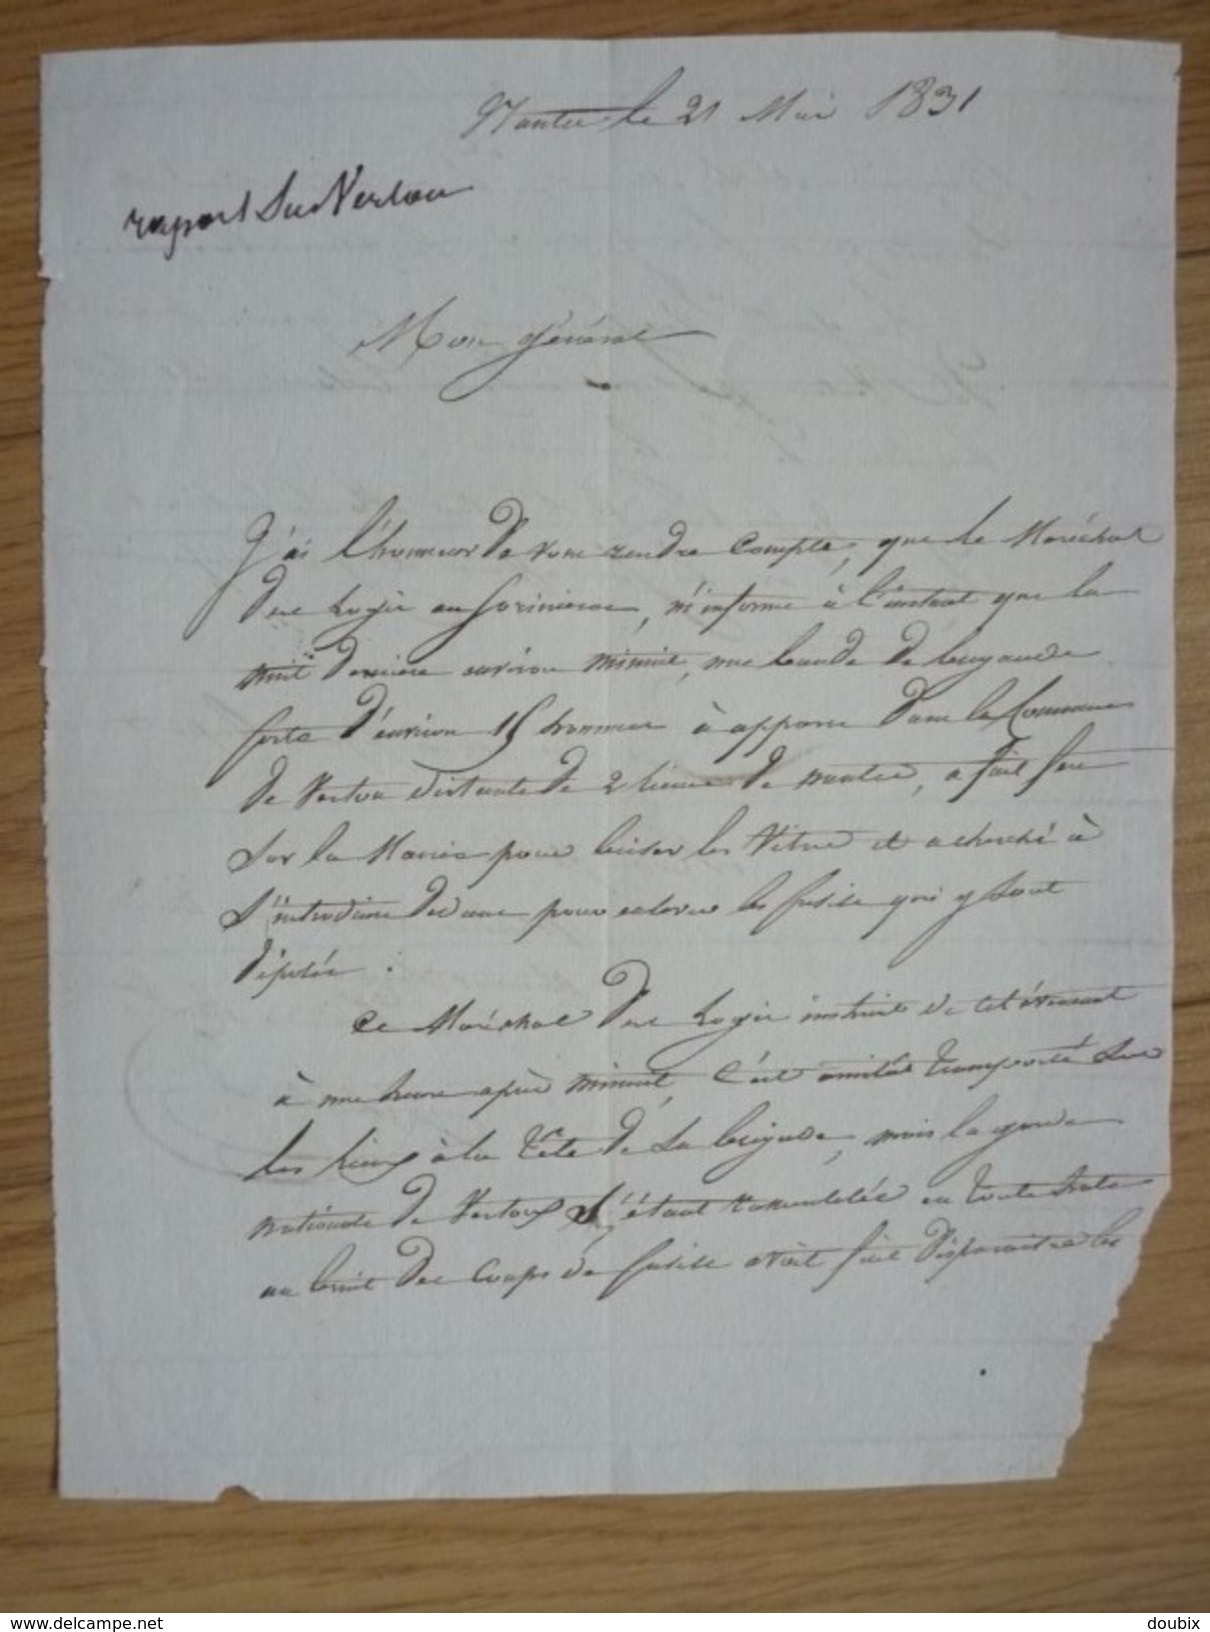 Nantes le 21 Mai 1831
raport Sur Vertou
Mon général
J'ai l'honneur de vous rendre compte, que le Maréchal
des Logis au Sorinieres, m'informe à l'instant que la
nuit derniere environ minuit, une bande de brigands
forte d'environ 15 hommes à apparu dans la Commune
de Vertou distante de 2 lieues de nantes, a fait feu
Sur la Mairie pour briser les Vitres et a cherché à
S'introduire dedans pour enlever les fusils qui y sont
déposés.
Ce Maréchal des Logis instruit de cet évenement
à une heure après minuit, c'est aussitôt transporté Sur
les lieux à la tête de Sa brigade, mais la garde
nationale de Vertou S'étant rassemblée en toute hate
au bruit des coups de fusils avait fait disparaitre les
delcampe.net
doubix